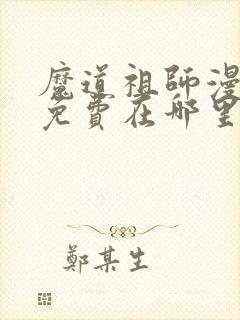 魔道祖師漫
免費在哪里
鄭某生